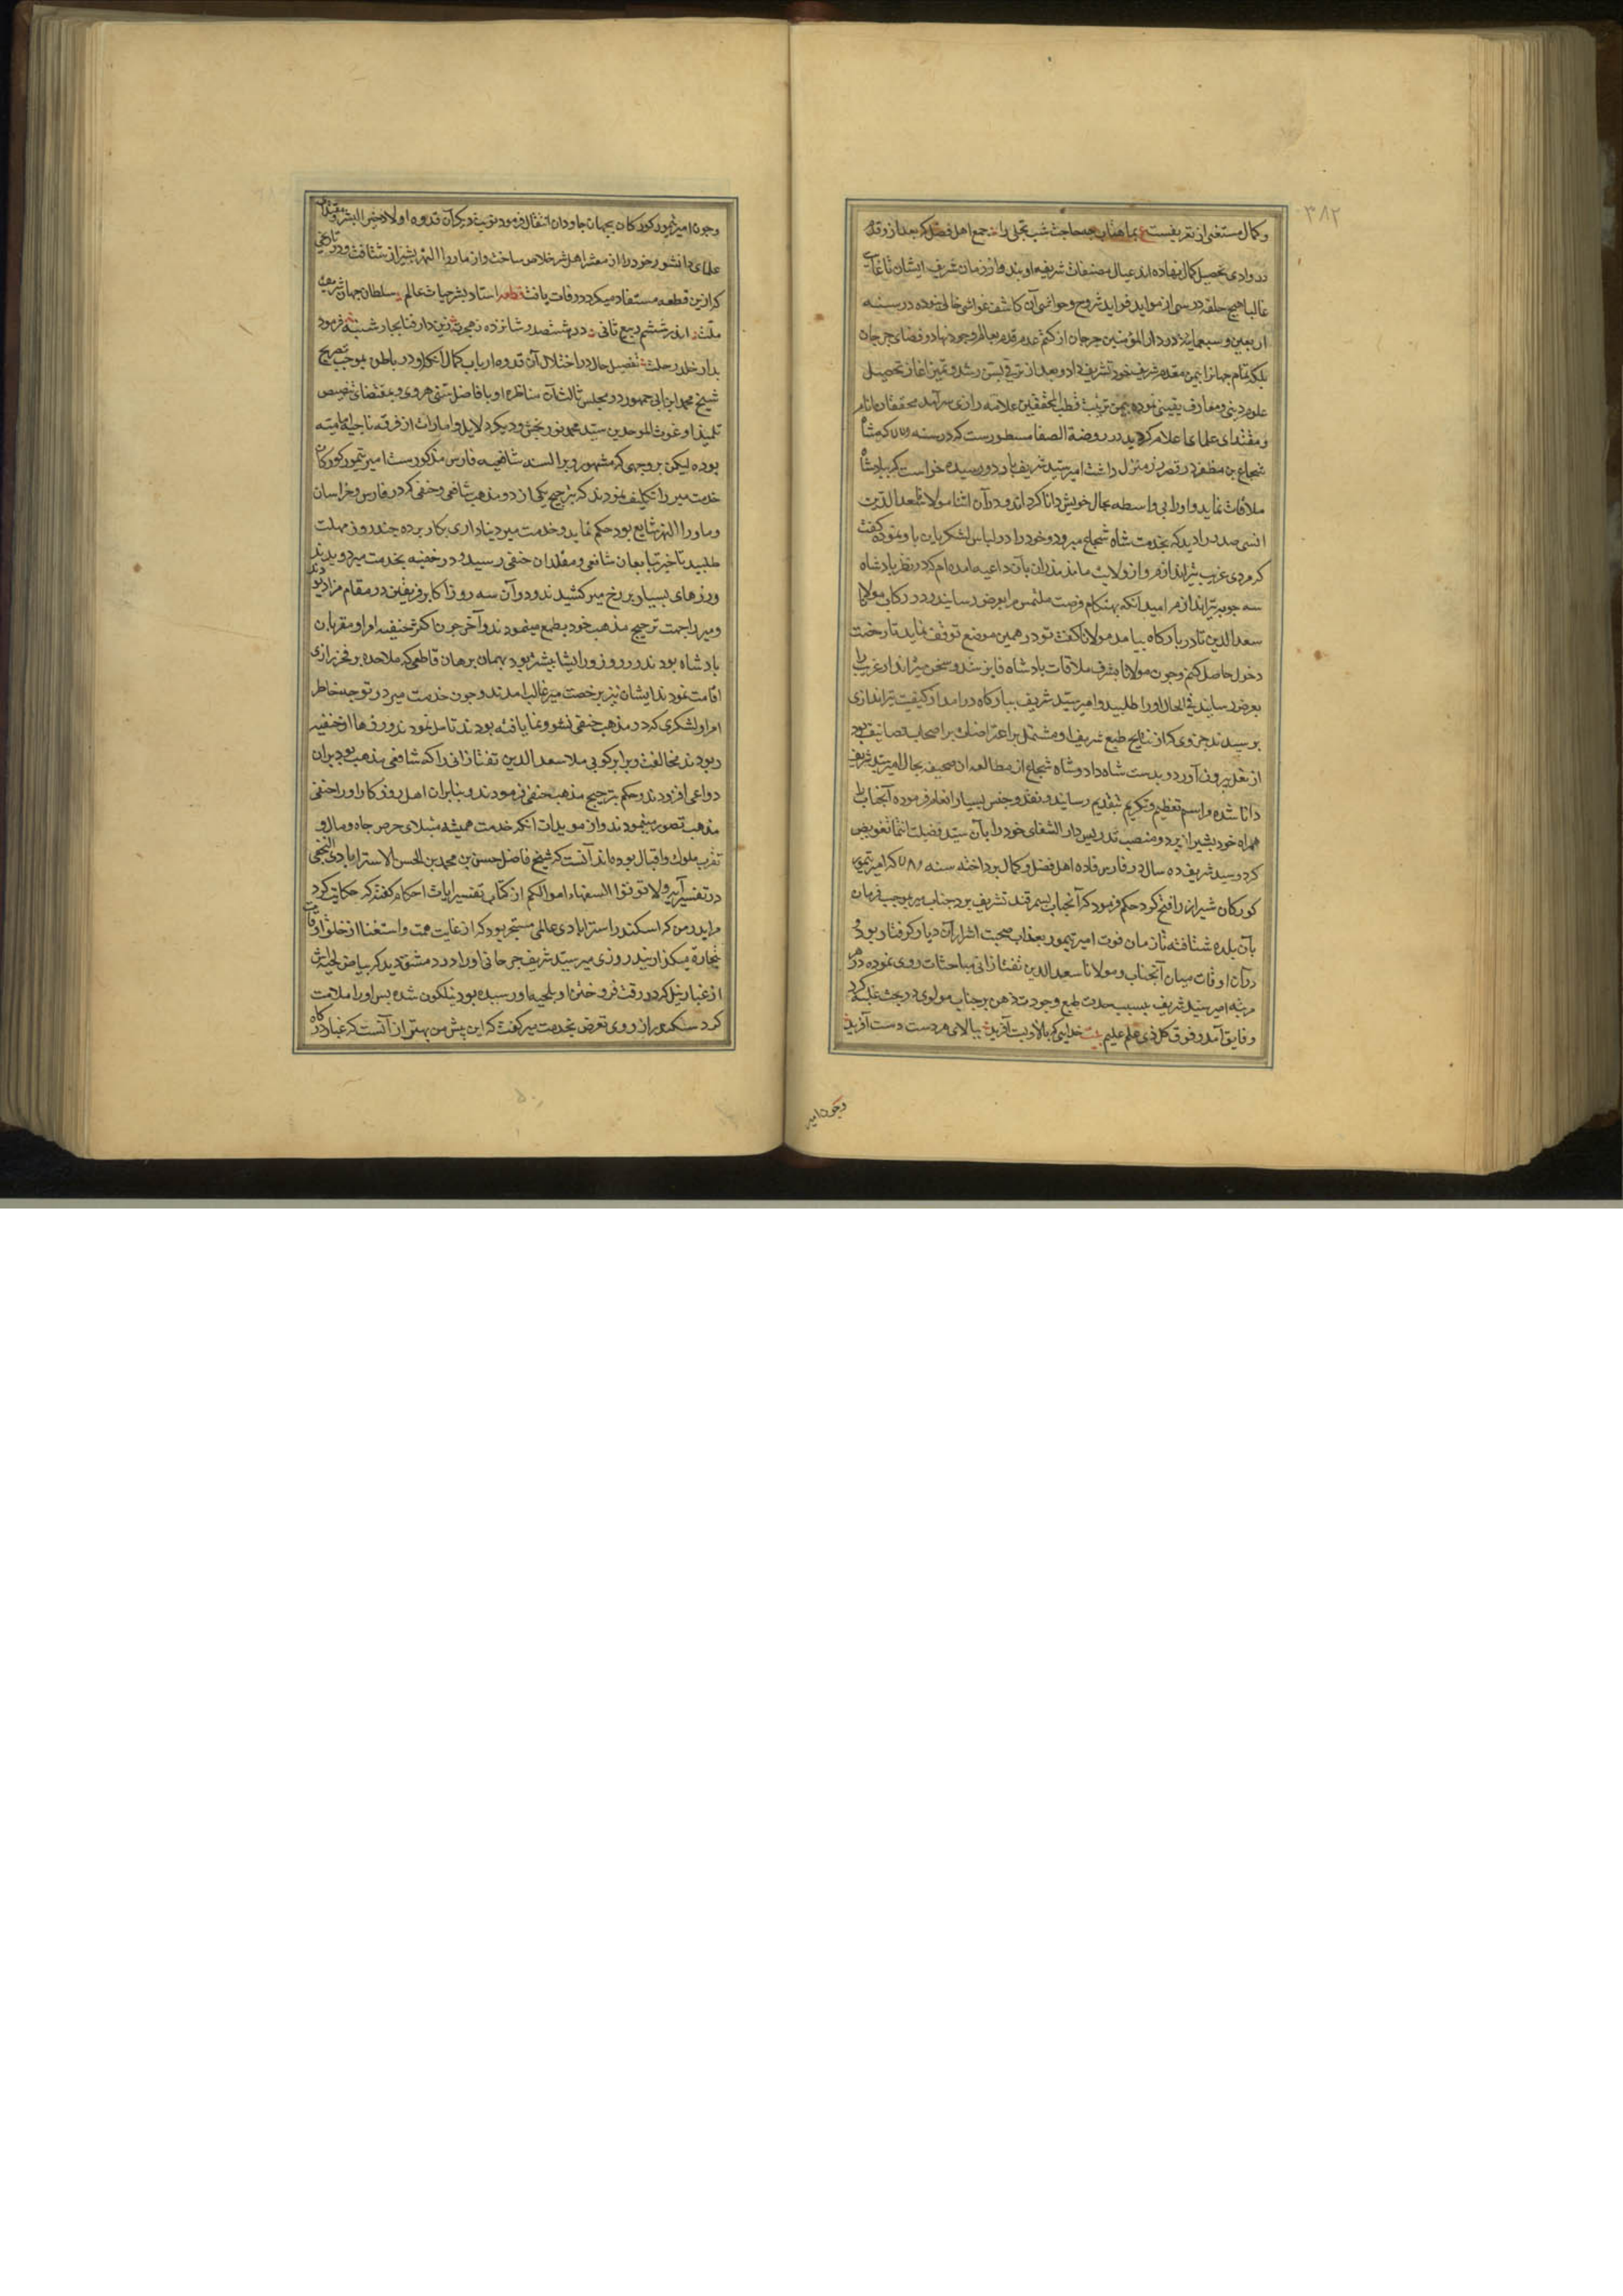 ۳۸۲
و کمال مستغنی از تعریفست ع بماهتاب چه حاجت شب تجلی را جمع اهل فضل که بعد از و قدم
در وادی تحصیل کمال نهاده اند عیال مصنفات شریفه او بند و از زمان شریف ایشان تا غایت
غالبا هیچ حلقه درسی از مواید فواید شروح و حواشی آن کاشف غواشی خالی نبوده در سنه
اربعین و سبعمایه در دار المؤمنین جرجان از کتم عدم قدم بعالم وجود نهاد و فضای جرجان
بلکه تمام جهانرا بیمن مقدم شریف خود تشریف داد و بعد از ترقی بسن رشد و تمیز اغاز تحصیل
علوم دینی و معارف یقینی نموده بیمن تربیت قطب المحققین علامه رازی سرآمد محققان انام
و مقتدای علمای اعلام گردید در روضة الصفا مسطورست که در سنه که شاه
شجاع بن مظفر در قصر زر منزل داشت امیر سید شریف باردو رسیده خواست که با پادشاه
ملاقات نماید و اورا بی واسطه بحال خویش دانا گرداند و در آن اثنا مولانا سعد الدین
انسی صدر را دید که بخدمت شاه شجاع میرود و خود را در لباس لشکریان باو نموده گفت
که مردی غریب تیراندازم و از ولایت مازندران بآن داعیه امده ام که در نظر پادشاه
سه چوبه تیر اندازم امید آنکه بهنگام فرصت ملتمس مرا بعرض رسانید و در رکاب مولانا
سعد الدین تا در بارگاه بیامد مولانا گفت تو در همین موضع توقف نماید تا رخصت
دخول حاصل کنم و چون مولانا بشرف ملاقات پادشاه فایز شد و سخن تیرانداز غریب را
بعرض رسانید فی الحال اورا طلبید و امیر سید شریف ببارگاه درامد از کیفیت تیراندازی
پرسیدند جزوی که از نتایج طبع شریف او مشتمل بر اعتراضات بر اصحاب تصانیف بود
از بغل بیرون آورد و بدست شاه داد و شاه شجاع از مطالعه ان صحیفه بحال امیر سید شریف
دانا شده مراسم تعظیم و تکریم بتقدیم رسانید و نقد و جنس بسیار انعام فرموده آنجناب را
همراه خود بشیراز برد و منصب تدریس دار الشفای خود را بآن سید فضیلت انتما تفویض
کرد و سید شریف ده سال در فارس بافاده اهل فضل و کمال پرداخته سنه که امیر تیمور
کورکان شیراز را فتح کرد حکم فرمود که آنجناب بسمرقند تشریف برد جناب میر بموجب فرمان
بآن بلده شتافته تا زمان فوت امیر تیمور بعذاب صحبت اشرار آن دیار گرفتار بود و
در آن اوقات میان آنجناب و مولانا سعد الدین تفتازانی مباحثات روی نموده در هر
مرتبه امیر سید شریف بسبب حدت طبع و جودت ذهن بر جناب مولوی در بحث غلبه کرد
و فایق آمد و فوق کل ذی علم علیم بیت خدایی که بالا و پست آفرید ببالای هر دست دست آفرید
و چون امیر
و چون امیر تیمور کورکان بجهان جاودان انتقال فرمود نوبت دیگر آن قدوه اولاد خیر البشر و مقتدای
علمای دانشور خود را از معشر اهل شر خلاص ساخت و از ماورا النهر بشیراز شتافت و در تاریخی
که ازین قطعه مستفاد میگردد وفات یافت قطعه استاد بشر حیات عالم سلطان جهان شریف
ملت اندر ششم ربیع ثانی در هشتصد و شانزده ز هجرت زین دار فنا بچار شنبه فرمود
بدار خلد رحلت تفصیل حال در اختلال آن قدوه ارباب کمال آنکه او در باطن بموجب تصریح
شیخ محمد ابن ابی جمهور در مجلس ثالث آن مناظره او با فاضل سنی هروی و بمقتضای تنصیص
تلمیذ او غوث الموحدین سید محمد نوربخش و دیگر دلایل و امارات از فرقه ناجیه امامیه
بوده لیکن بر وجهی که مشهور و بر السنه شافعیه فارس مذکورست امیر تیمور کورکان
خدمت میر را تکلیف نمودند که بترجیح یکی از دو مذهب شافعی و حنفی که در فارس و خراسان
و ماورا النهر شایع بود حکم نماید و خدمت میر دینداری بکار برده چند روز مهلت
طلبید تا خبر بتابعان شافعی و مقلدان حنفی رسید و در خفیه بخدمت میر دویدند
و رزهای بسیار بر رخ میر کشیدند و در آن سه روز اکابر فریقین در مقام مزاد بودند
و میر را جهت ترجیح مذهب خود بطمع مینمودند و آخر چون اکثر حنفیه امرا و مقربان
پادشاه بودند و زر و زور ایشان بیشتر بود بهمان برهان قاطعی که ملاحده بر فخر رازی
اقامت نمودند ایشان نیز بر خصت میر غالب امدند و چون خدمت میر در توجه خاطر
امرا و لشکری که در مذهب حنفی نشو و نما یافته بودند تامل نمودند و زرها از حنفیه
ربودند مخالفت و برابر کویی ملا سعد الدین تفتازانی را که شافعی مذهب بود بران
دواعی افزودند و حکم بترجیح مذهب حنفی فرمودند و بنابران اهل روزگار اورا حنفی
مذهب تصور مینمودند و از مویدات آنکه خدمت همیشه مبتلای حرص جاه و مال و
تقرب ملوک و اقبال بوده اند آنست که شیخ فاضل حسن بن محمد بن الحسن الاسترابادی النجفی
در تفسیر آیه ولا توتوا السفهاء اموالکم از کتاب تفسیر ایات احکام گفته که حکایت کرد
مرا پدر من که اسکندر استرابادی عالمی متبحر بود که از غایت همت و استغنا از خلق اوقات
بتجارت میگذرانید روزی میر سید شریف جرجانی اورا در دمشق دید که بیاض لحیه اش
از غبار نیل که در وقت فروختن او بلحیه او رسیده بود نیلگون شده پس اورا ملامت
کرد سکندر از روی تعرض بخدمت میر گفت که این ریش من بهتر از آنست که غبار درگاه